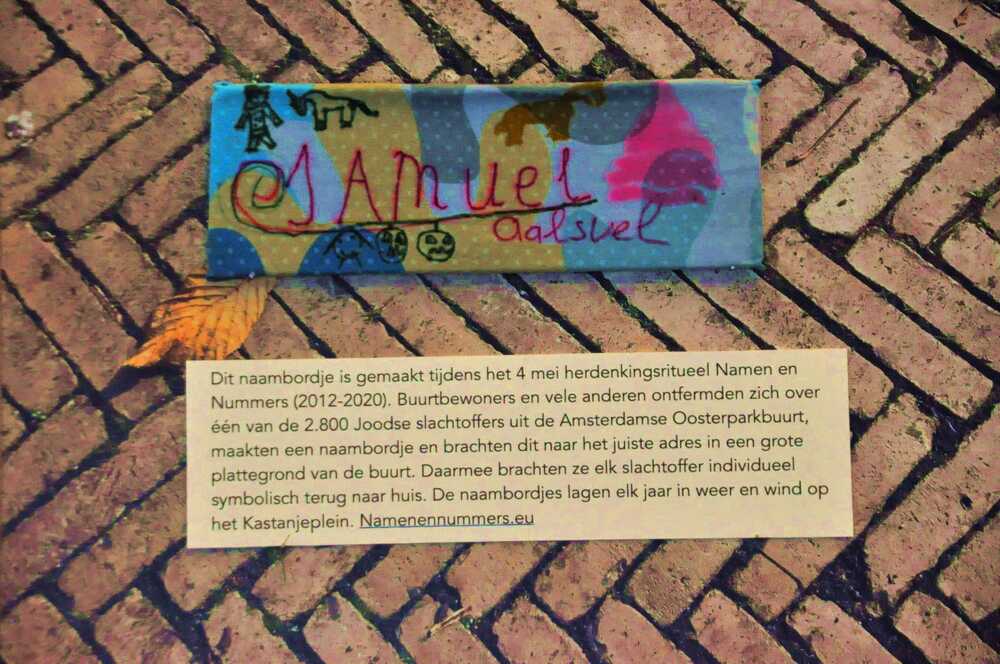 SAMuel
aalsvel
Dit naambordje is gemaakt tijdens het 4 mei herdenkingsritueel Namen en
Nummers (2012-2020). Buurtbewoners en vele anderen ontfermden zich over
één van de 2.800 Joodse slachtoffers uit de Amsterdamse Oosterparkbuurt,
maakten een naambordje en brachten dit naar het juiste adres in een grote
plattegrond van de buurt. Daarmee brachten ze elk slachtoffer individueel
symbolisch terug naar huis. De naambordjes lagen elk jaar in weer en wind op
het Kastanjeplein. Namenennummers.eu